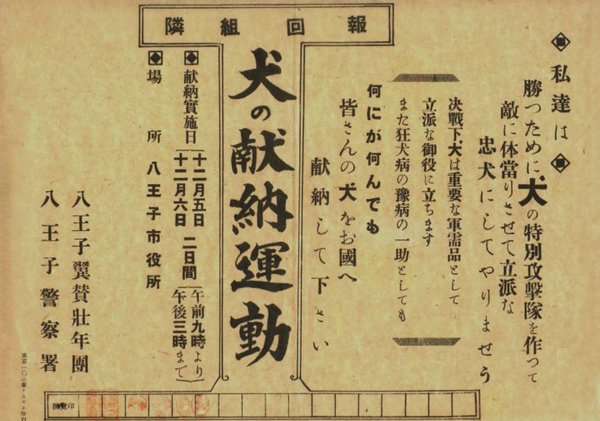 隣組回報
私達は
勝つために犬の特別攻撃隊を作つて
敵に体當りさせて立派な
忠犬にしてやりませう
决戰下犬は重要な軍需品として
立派な御役に立ちます
また狂犬病の豫病の一助としても
何にが何んでも
皆さんの犬をお國へ
献納して下さい
犬の献納運動
献納實施日 十二月五日 十二月六日 二日間 午前九時より 午後三時まで
場所 八王子市役所
八王子翼賛壯年團
八王子警察署